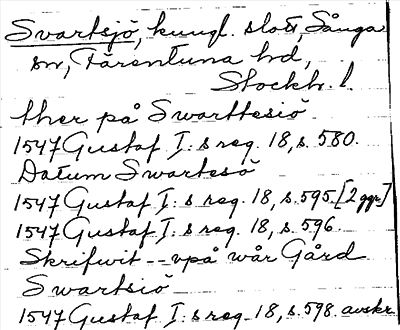 Svartsjö, kungl. slott, Sånga
sn, Färentuna hd,
Stockh. l.
ther på Swarttesiö
1547 Gustaf I:s reg. 18, s. 580.
Datum Swartesö
1547 Gustaf I:s reg. 18, s. 595. [2 ggr]
1547 Gustaf I:s reg. 18, s. 596.
Skrifwit -- vpå wår Gård
Swartsiö
1547 Gustaf I:s reg. 18, s. 598. avskr.